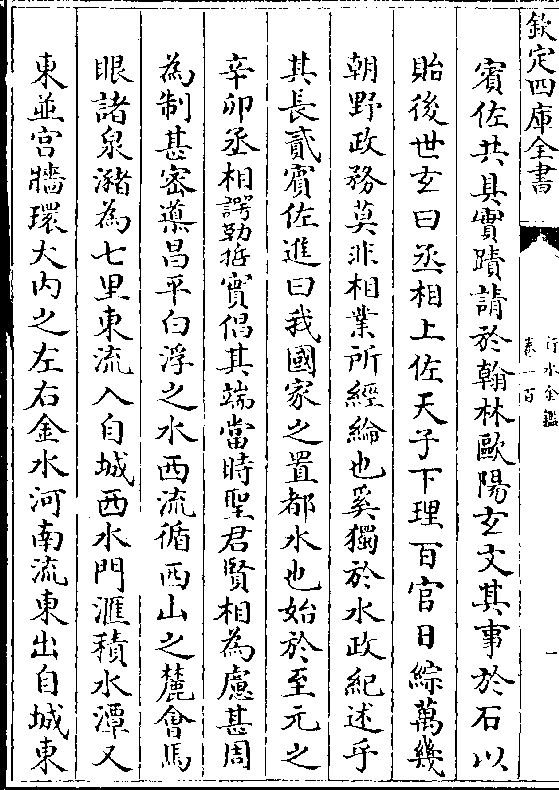 欽定四庫全書
行水金鑑
卷一百
一
賓佐共具實蹟請於翰林歐陽玄文其事於石以
貽後世玄曰丞相上佐天子下理百官日綜萬幾
朝野政務莫非相業所經綸也奚獨於水政紀述乎
其長貳賓佐進曰我國家之置都水也始於至元之
辛卯丞相諤勒哲實倡其端當時聖君賢相為慮甚周
為制甚密遵昌平白浮之水西流循西山之麓會馬
眼諸泉瀦為七里東流入自城西水門滙積水潭又
東並宫牆環大内之左右金水河南流東出自城東